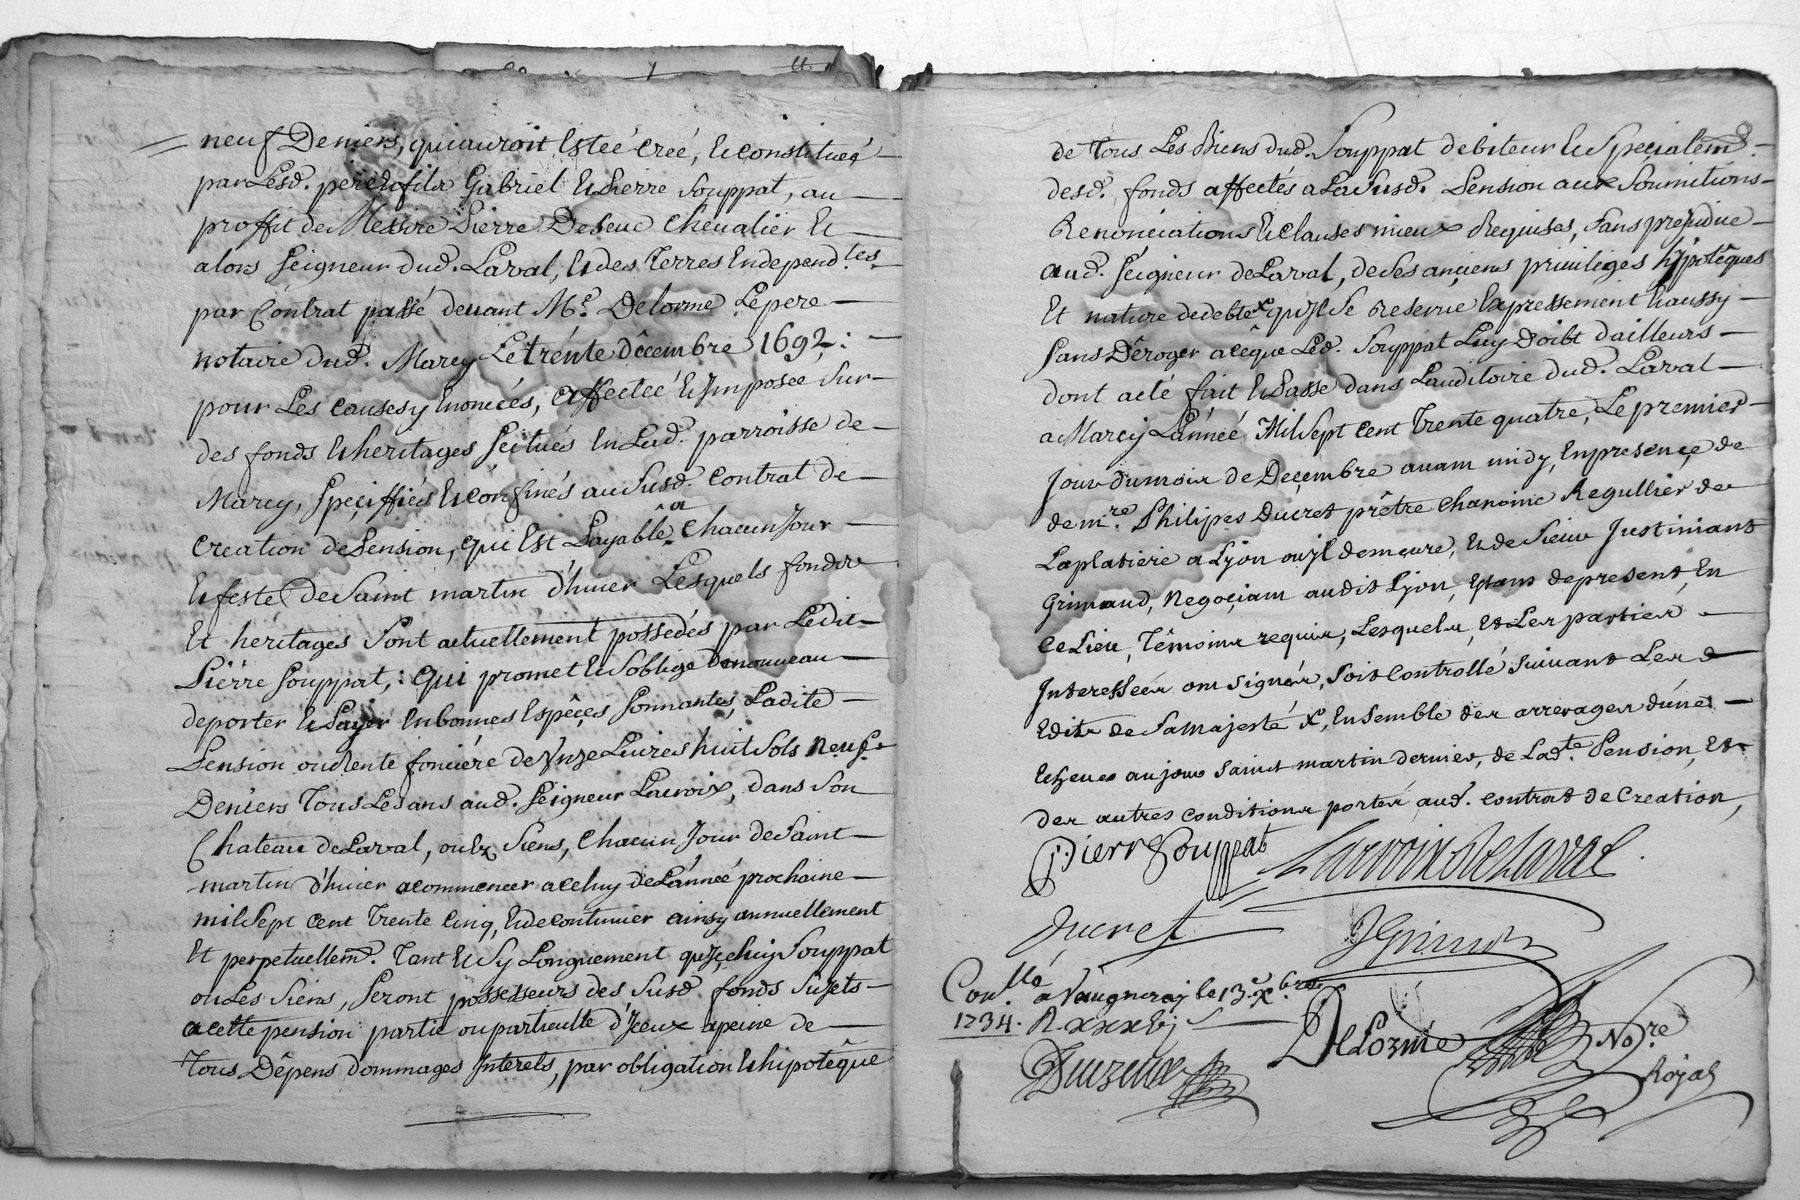 neuf Deniers, qui auroit Esteé creé, Et constitueé
par Lesd. pere et fils Gabriel Et Pierre Souppat, au
proffit de Messire Pierre Deseue Chevalier Et
alors Seigneur dud. Laval, Et des Terres Independ.tes
par Contrat passé devant Me. Delorme Le pere
notaire dud. Marcy Le trénte Décembre 1692:
pour Les causes y Enonceés, affectée Et Imposée sur
des fonds Et heritages scitués En Lad. parroisse de
Marcy, speciffiés Et confinés au susd. contrat de
creation de Pension, qui Est Payable a Chacun Jour
Et feste De Saint martin d'hiver Lesquels fonds
Et heritages sont actuellement possedés par Ledit
Piérre Souppat, : qui promet Et s'oblige De nouveau
de porter Et Payer En bonnes Espéces sonnantes Ladite
Pension ou Rente fonciére de Unze Livres huit Sols neuf
Deniers Tous Les ans aud. Seigneur Lacroix, dans Son
Chateau de Laval, ou Ez siens, chacun Jour de Saint
martin d'hiver a commencer a celuy de L'année prochaine
mil sept cent Trente cinq, Et de continuer ainsy annuellement
Et perpetuellemt. Tant Et sy Longuement qu'Iceluy Souppat
ou Les siens, seront possesseurs des susd. fonds sujets
a cette pension partie ou particulle d'Iceux a peine de
Tous Dépens dommages Interets, par obligation Et hipotéque
de Tous Les Biens dud. Souppat debiteur Et specialemt.
desd. fonds affectés a La susd. Pension aux soumitions
Renonciations Et clauses mieux Requises, sans prejudice
aud. Seigneur de Laval, de ses anciens privileges hÿpotêques
Et nature de debte x qu'Jl se Reserve Expressement Et aussy
sans Déroger a cêque Led. Souppat Luy doibt d'ailleurs
dont acté fait Et Passé dans L'auditoire dud. Laval
a Marcÿ L'année Mil sept cent Trente quatre, Le premier
Jour du mois de Decembre avant midy, En presence de
de mre. Philipes Ducret prêtre chanoine Regullier de
Laplatiere a Lyon ou jl demeure, et de Sieur Justiniant
Grimaud, Negociant audit Lyon, Estant de present En
ce Lieu, Témoins requis, Lesquels et Les parties
Interesseés ont signér, soit Controllé suivant Les
Edits de sa Majesté x, Ensemble des arrerages d'úne
Echeue au jour saint martin dernier, de Lad.te Pension, Et
des autres conditions portés aud. contrat de Creation,
Pierre Souppat Lacroix De Laval
Ducret JGrimaud
Con.llé a Vaugneray le 13.e Xbre
1734. R. xxxbj s
Delorme No.re
Royal